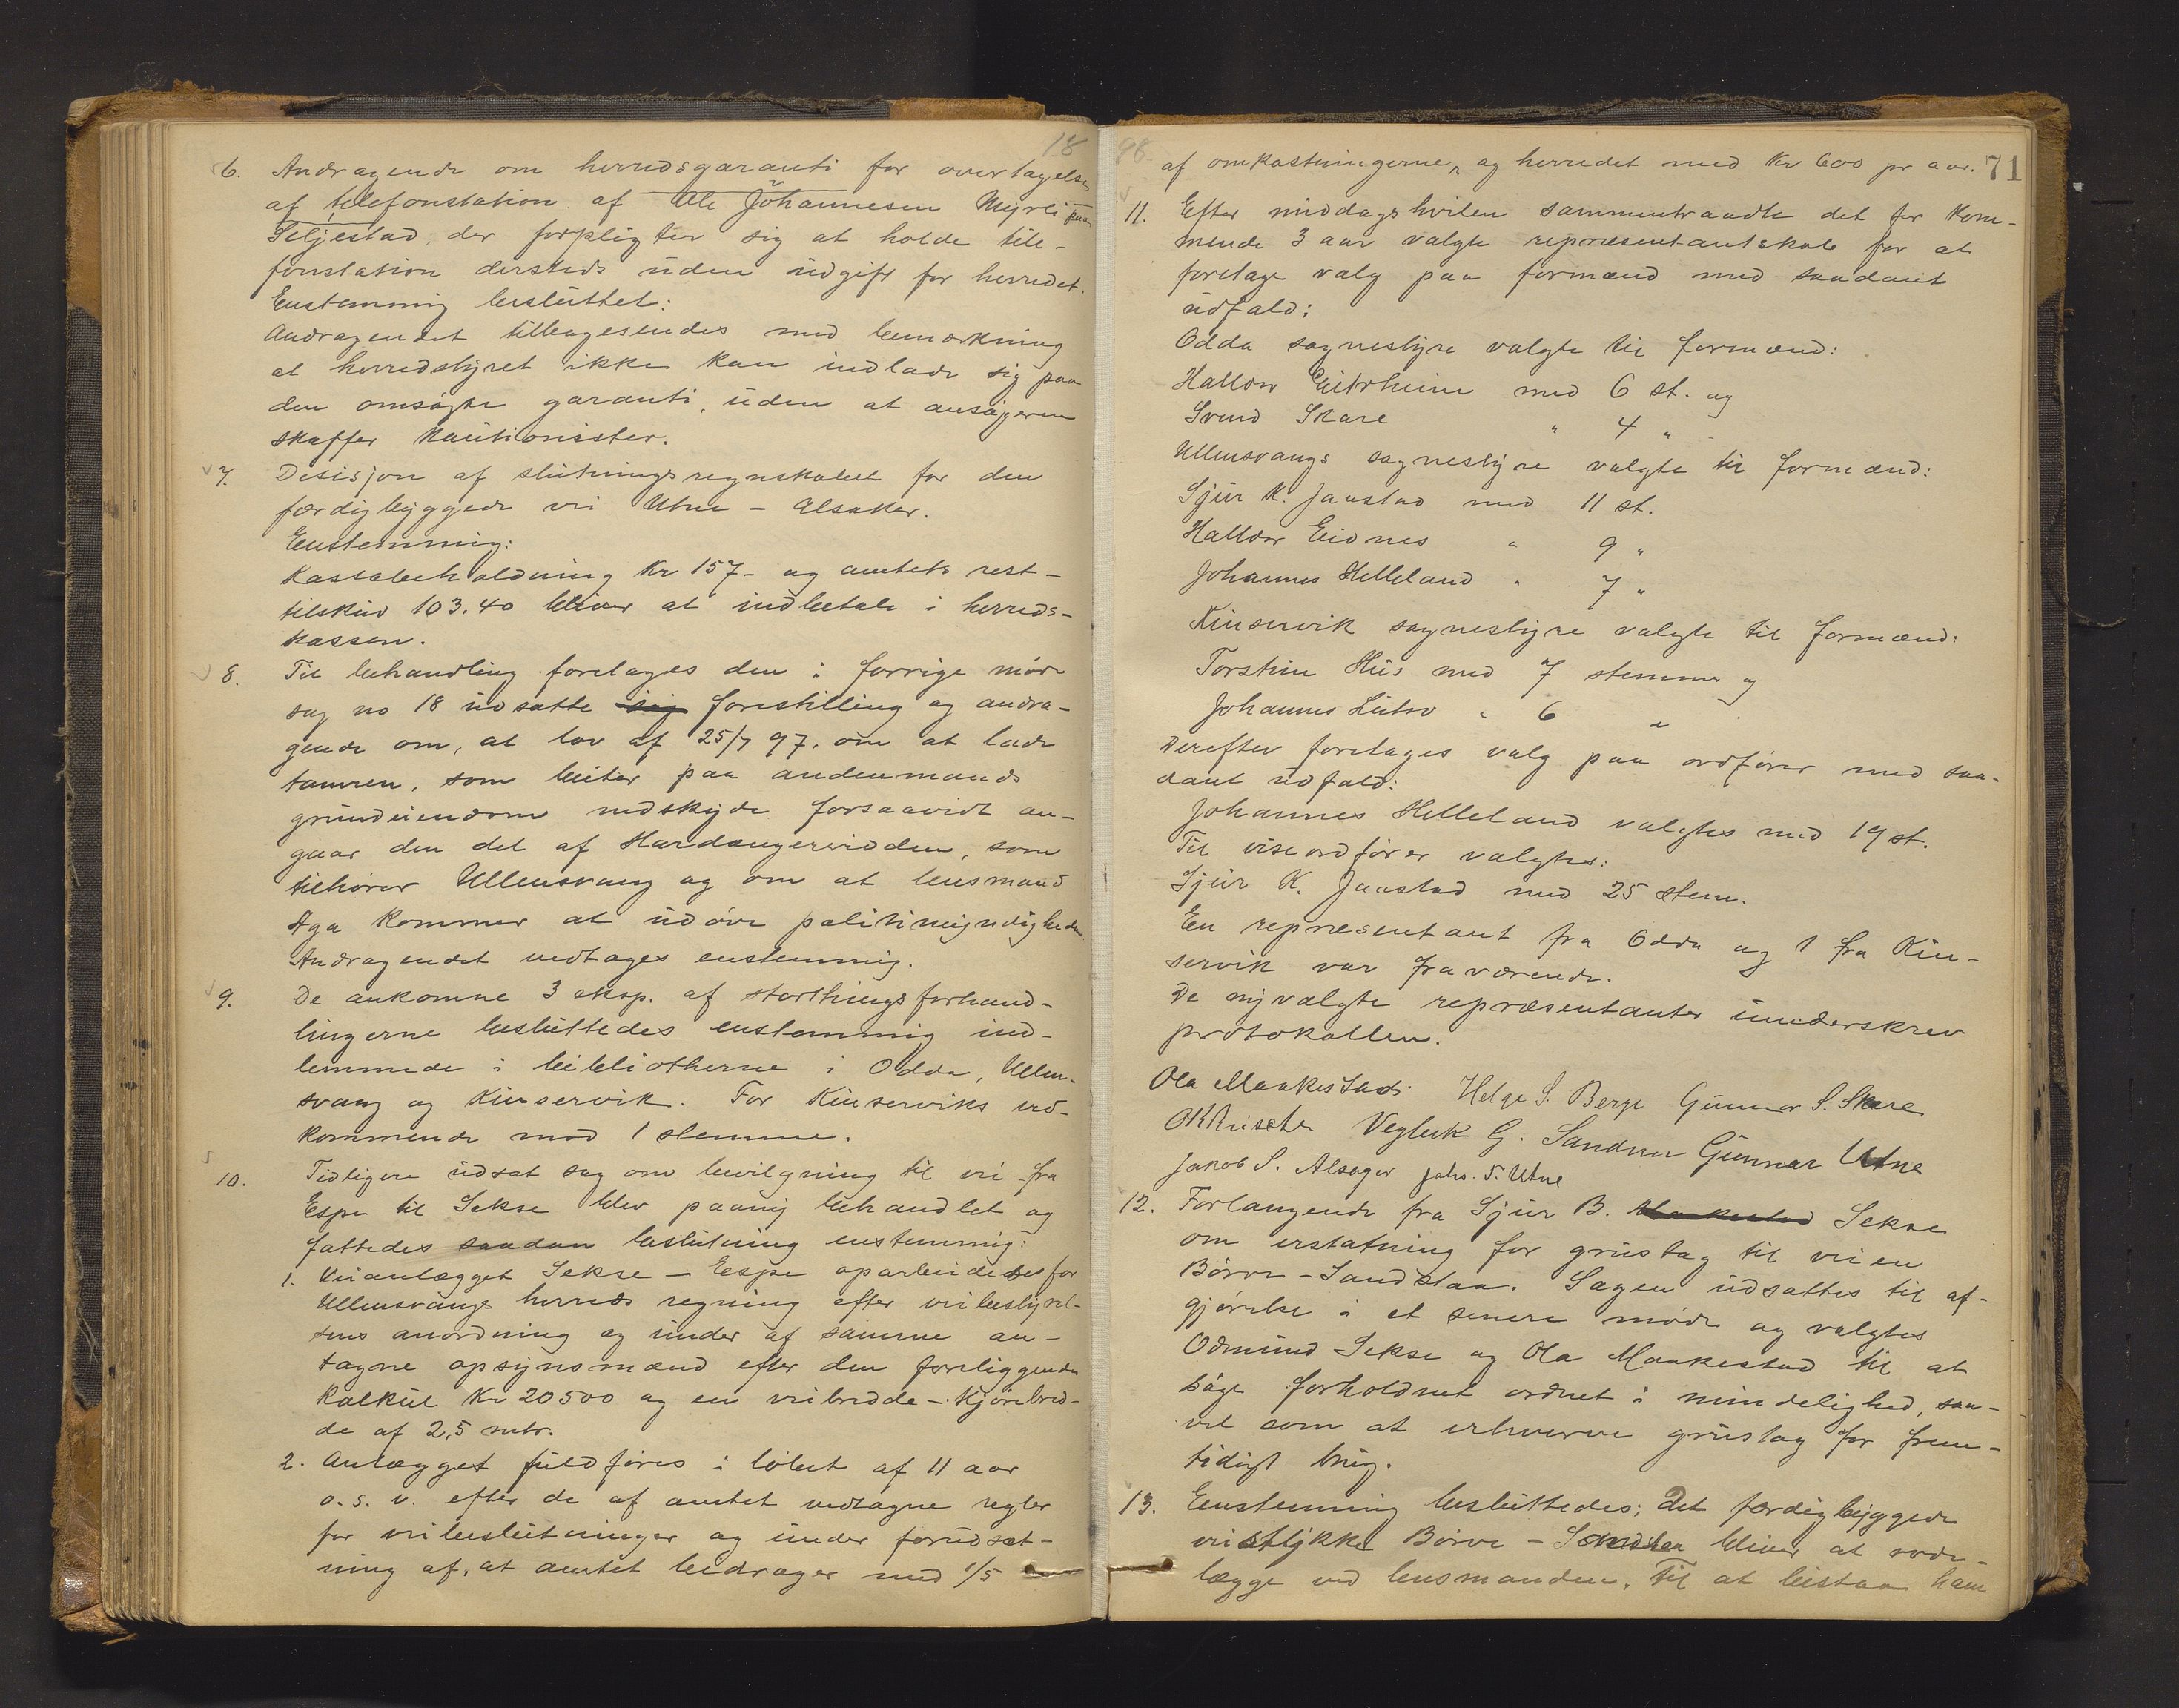 18
6. Andragende om herredsgaranti for overtagelse
af telefonstation af Ole Johannesen Myrli paa
Seljestad, der forpligter sig at holde tele-
fonstation dersteds uden udgift for herredet.
Enstemmig besluttet:
Andragendet tilbagesendes med bemærkning
at herredstyret ikke kan indlade sig paa
den omsøgte garanti, uden at ansøgeren
skaffer kautionister.
7. Desisjon af slutningsregnskabet for den
færdigbyggede vei Utne - Alsaker.
Enstemmig:
Kassabeholdning Kr 157- og amtets rest-
tilskud 103.40 bliver at indbetale i herreds-
kassen.
8. Til behandling foretages den i forrige møde
sag no 18 udsatte sag forestilling og andra-
gende om, at lov af 25/7 97. om at lade
tamren, som beiter paa andenmands
grundeiendom nedskyde forsaavidt an-
gaar den del af Hardangervidden, som
tilhører Ullensvang og om at lensmand
Aga kommer at udøve politimyndigheden.
Andragendet vedtages enstemmig.
9. De ankomne 3 eksp. af storthingsforhand-
lingerne besluttedes enstemmig ind-
lemmede i bibliotherne i Odda, Ullen-
svang og Kinservik. For Kinserviks ved-
kommende mod 1 stemme.
10. Tidligere udsat sag om bevilgning til vei fra
Espe til Sekse blev paany behandlet og
fattedes saadan beslutning enstemmig:
1. Veianlægget Sekse - Espe oparbeidedes for
Ullensvangs herreds regning efter veibestyrel-
sens anordning og under af samme an-
tagne opsynsmænd efter den foreliggende
kalkül Kr 20500 og en veibredde - Kjørebred-
de af 2,5 mtr.
2. Anlægget fuldføres i løbet af 11 aar
o. s. v. efter de af amtet vedtagne regler
for veibeslutninger og under forudsæt-
ning af, at amtet bidrager med 1/5
98. 71
af omkostningerne, og herredet med Kr 600 pr aar.
11. Efter middagshvilen sammentraadte det for kom-
mende 3 aar valgte repræsentantskab for at
foretage valg paa formænd med saadant
udfald:
Odda sognestyre valgte til formænd:
Halldor Eitrheim med 6 st. og
Svend Skare " 4 "
Ullensvangs sognestyre valgte til formænd:
Sjur K. Jaastad med 11 st.
Halldor Eidnes " 9 "
Johannes Helleland " 7 "
Kinservik sognestyre valgte til formænd:
Torstein Hus med 7 stemmer og
Johannes Lutro " 6 "
Derefter foretages valg paa ordfører med saa-
dant udfald:
Johannes Helleland valgtes med 19 st.
Til viseordfører valgtes:
Sjur K. Jaastad med 25 stem.
En repræsentant fra Odda og 1 fra Kin-
servik var fraværende.
De nyvalgte repræsentanter underskrev
protokollen.
Ola Maakestad. Helge S. Berge Gunnar S. Skare
Vegleik G. Sandven Gunnar Utne
Jakob S. Alsager Johs. T. Utne
12. Forlangende fra Sjur B. Maakestad Sekse
om erstatning for grustag til veien
Børve - Sandstaa. Sagen udsattes til af-
gjørelse i et senere møde og valgtes
Odmund Sekse og Ola Maakestad til at
søge forholdnet ordnet i mindelighed, saa-
vel som at erhverve grustag for frem-
tidigt brug.
13. Enstemmig besluttedes; Det færdigbyggede
veistykke Børve - Sandstaa bliver at rode-
lægge ved lensmanden. Til at bistaa ham